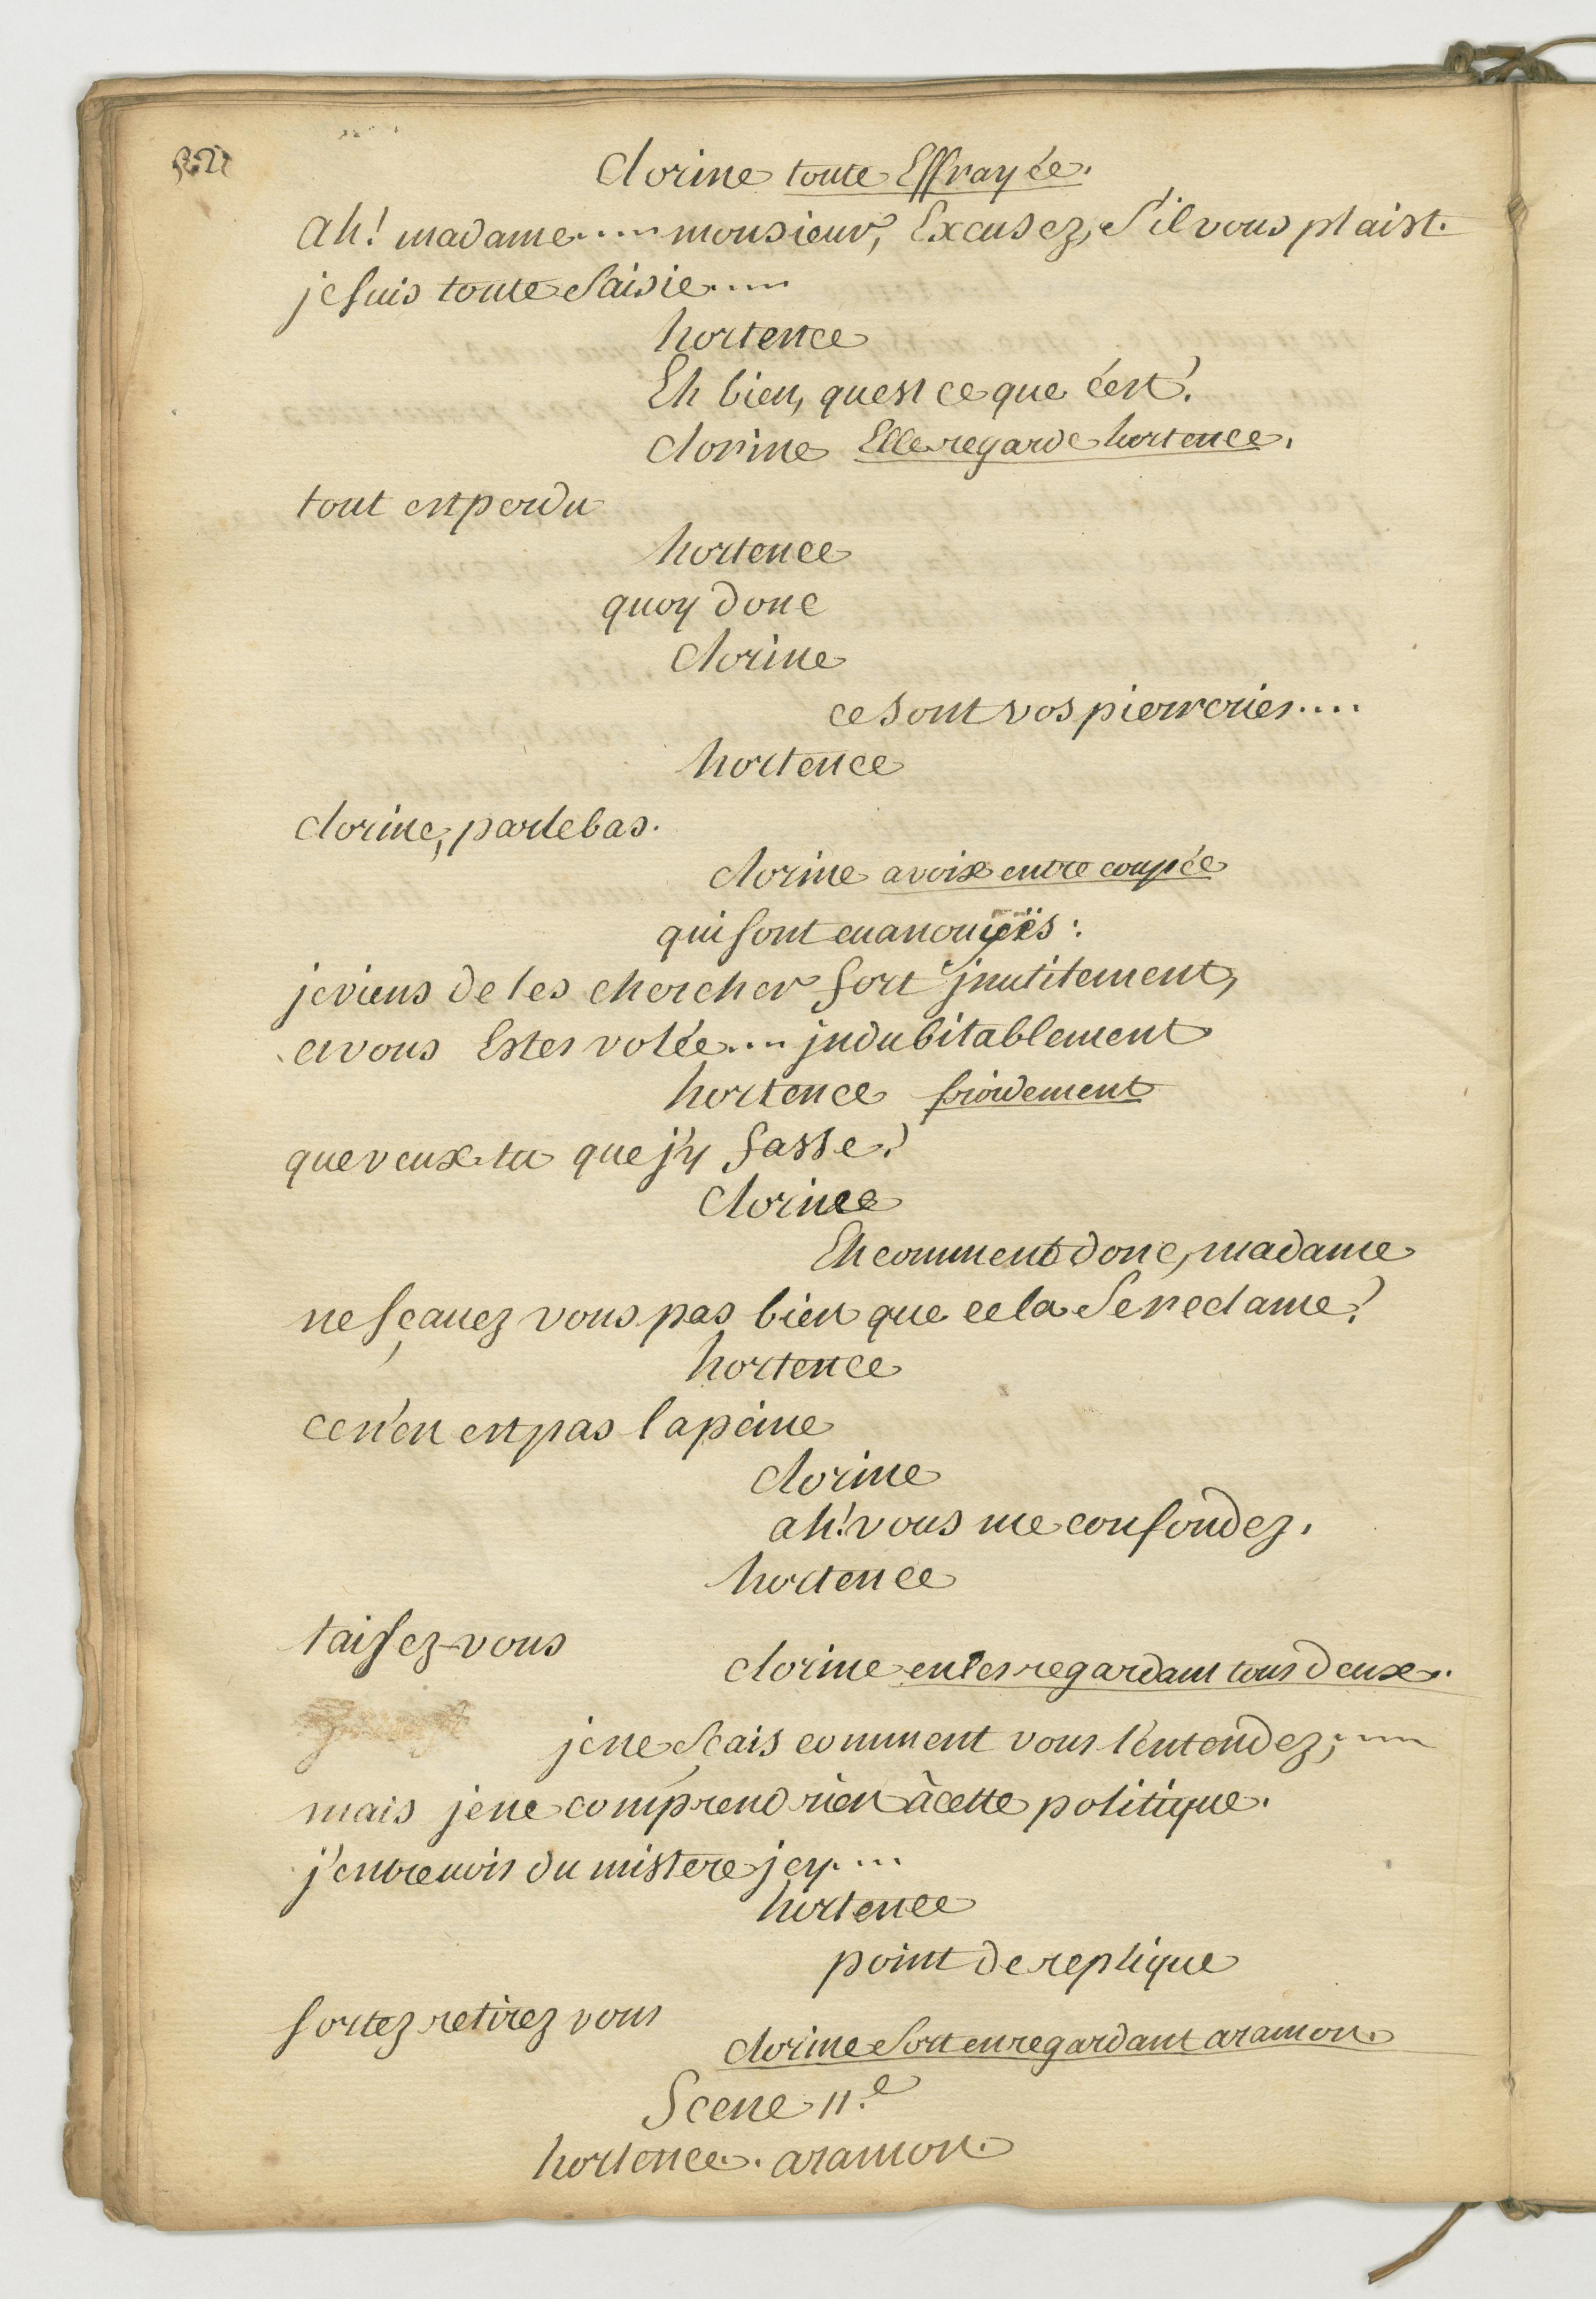 clorine toute Effrayée.
ah! madame.... monsieur, Excusez, s'il vous plaist.
je suis toute saisie....
hortence
Eh bien, quest ce que c'est?
clorine Elle regarde hortence.
tout est perdu
hortence
quoy donc
clorine
ce sont vos pierreries....
hortence
clorine, parle bas.
clorine a voix entre coupée
qui sont euanouyës:
je viens de les chercher fort jnutilement,
et vous Estes volée.... jndubitablement
hortence froidement
que veux-tu que j'y fasse?
clorine
Eh comment donc, madame
ne sçauez vous pas bien que cela se reclame?
hortence
ce n'en est pas la peine
clorine
ah! vous me confondez.
hortence
taisez-vous
clorine en les regardant tous deux.
je ne sçais comment vous l'entendez; ....
mais je ne comprend rien à cette politique.
j'entreuois du mistere jcy....
hortence
point de replique
sortez retirez vous
clorine sort en regardant aramon.
Scene 11.e
hortence. aramon.